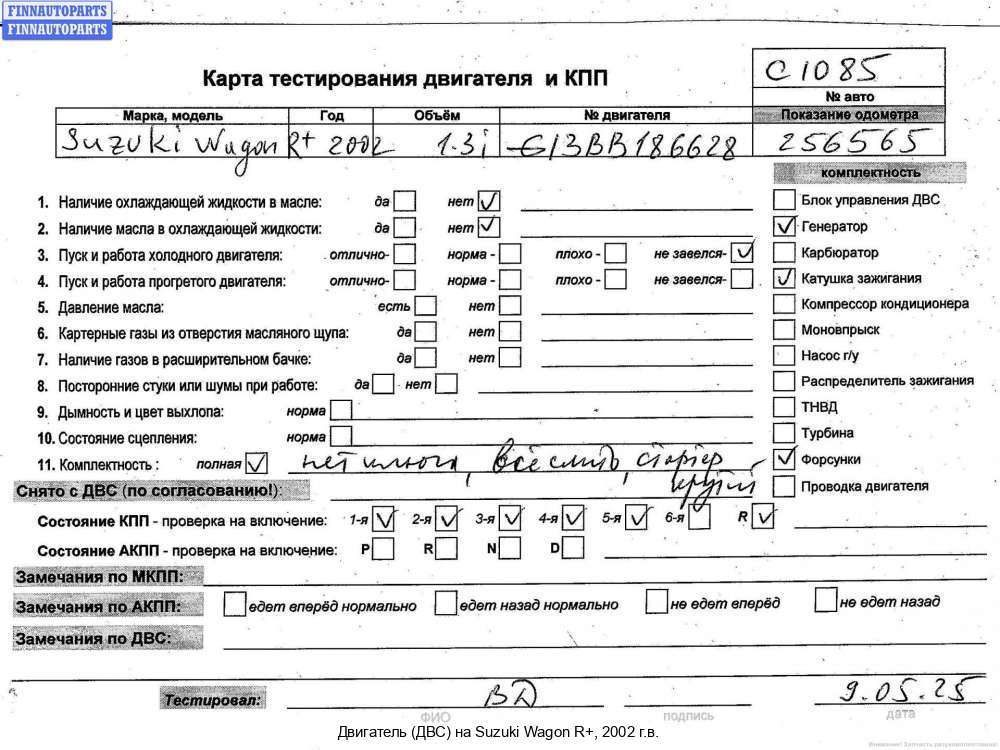 FINNAUTOPARTS
FINNAUTOPARTS
Карта тестирования двигателя и КПП
C1085
№ авто
Марка, модель Год Объём № двигателя Показание одометра
Suzuki Wagon R+ 2002 1.3i G13BB186628 256565
комплектность
1. Наличие охлаждающей жидкости в масле: да нет
Блок управления ДВС
2. Наличие масла в охлаждающей жидкости: да нет
Генератор
3. Пуск и работа холодного двигателя: отлично- норма - плохо - не завелся-
Карбюратор
4. Пуск и работа прогретого двигателя: отлично- норма - плохо - не завелся-
Катушка зажигания
5. Давление масла: есть нет
Компрессор кондиционера
6. Картерные газы из отверстия масляного щупа: да нет
Моновпрыск
7. Наличие газов в расширительном бачке: да нет
Насос г/у
8. Посторонние стуки или шумы при работе: да нет
Распределитель зажигания
9. Дымность и цвет выхлопа: норма
ТНВД
10. Состояние сцепления: норма
Турбина
11. Комплектность : полная нет , всё , стартер
Форсунки
крутит
Снято с ДВС (по согласованию!):
Проводка двигателя
Состояние КПП - проверка на включение: 1-я 2-я 3-я 4-я 5-я 6-я R
Состояние АКПП - проверка на включение: P R N D
Замечания по МКПП:
Замечания по АКПП: едет вперёд нормально едет назад нормально не едет вперёд не едет назад
Замечания по ДВС:
Тестировал: ВД 9.05.25
ФИО подпись дата
Двигатель (ДВС) на Suzuki Wagon R+, 2002 г.в.